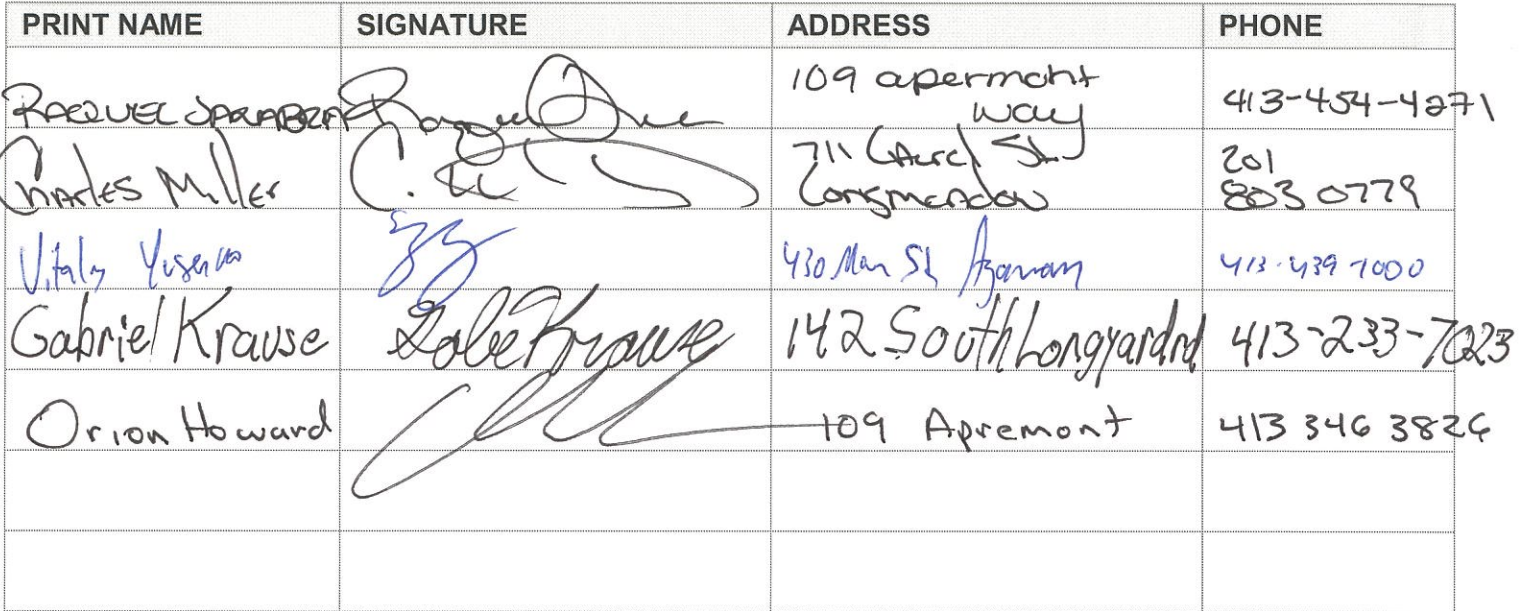 PRINT NAME SIGNATURE ADDRESS PHONE
RACQUEL 109 apermont
way 413-454-4271
Charles Miller 711 Laurel St. 201
Longmeadow 803 0779
Vitaly 430 Main St 413-439-7000
Gabriel Krause Gabe Krause 142 South Longyard rd 413-233-7023
Orion Howard 109 Apremont 413 346 3826